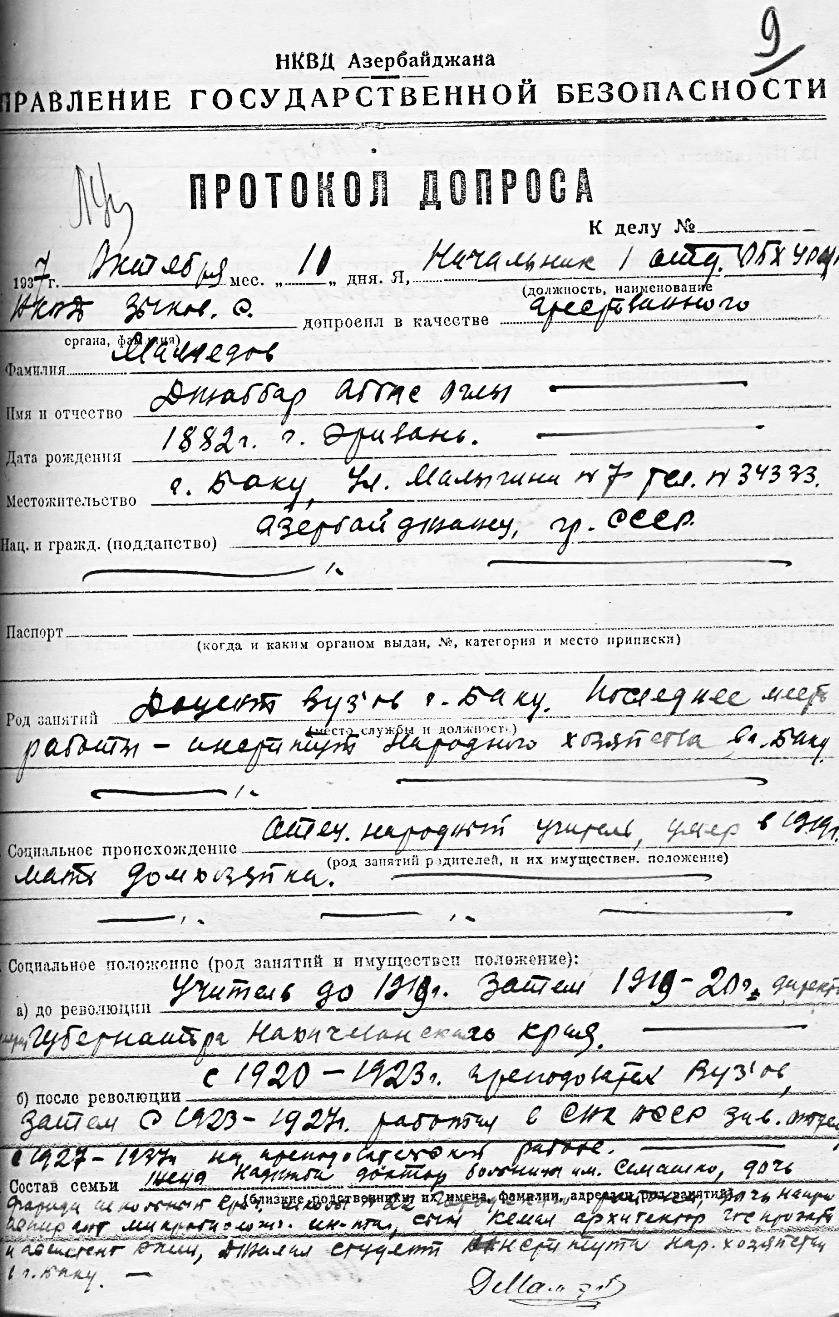 9
НКВД Азербайджана
ПРАВЛЕНИЕ ГОСУДАРСТВЕННОЙ БЕЗОПАСНОСТИ
ПРОТОКОЛ ДОПРОСА
К делу №
1937 г. Октября мес. „ 10 „ дня. Я, Начальник 1 отд.
(должность, наименование
НКВД Зыков. С. допросил в качестве арестованного
органа, фамилия)
Фамилия Мамедов
Имя и отчество Джаббар Аббас Оглы
Дата рождения 1882 г. г. Эривань.
Местожительство г. Баку, Ул. Малыгина № 7 тел. № 34333.
Нац. и гражд. (подданство) азербайджанец, гр. СССР.
Паспорт
(когда и каким органом выдан, №, категория и место приписки)
Род занятий Доцент Вуз'ов г. Баку. Последнее место
(место службы и должность)
работы – институт Народного хозяйства в г. Баку
Социальное происхождение Отец народный учитель, умер в 1919 г.
(род занятий родителей, и их имуществен. положение)
мать домохозяйка.
Социальное положение (род занятий и имуществен положение):
а) до революции Учитель до 1919 г. Затем 1919–20 г.
Губернатора Нахичеванского края.
б) после революции с 1920 – 1923 г. преподователь Вуз'ов,
Затем с 1923–1927 г. работал в СНК зав.
с 1927–1937 г. на преподавательской работе.
Состав семьи жена доктор больницы им. Семашко, дочь
(близкие родственники, их имена, фамилии, адреса и род занятий)
сын Кемал архитектор
Джалал студент института нар. хозяйства
в г. Баку. —